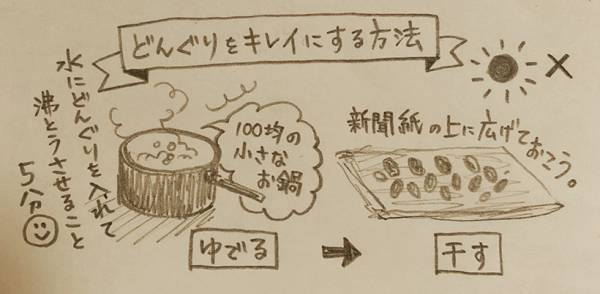 どんぐりをキレイにする方法
水にどんぐりを入れて
沸とうさせること
5分
100均の
小さな
お鍋
ゆでる
新聞紙の上に広げておこう。
干す